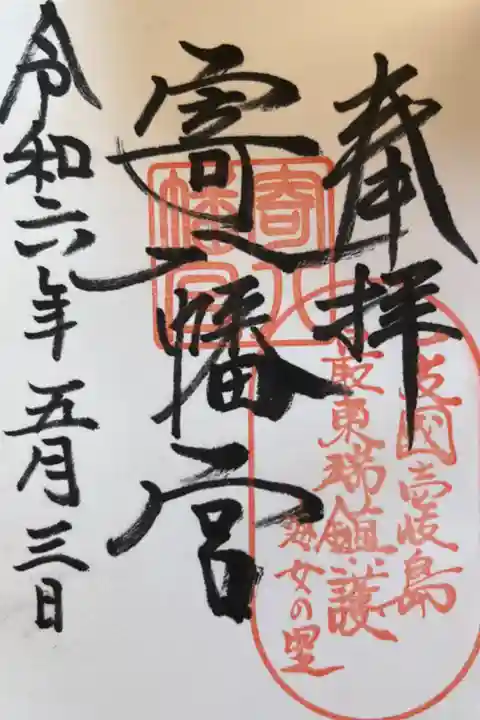 奉拝
寄八幡宮
令和六年五月三日
寄八
幡宮
壱岐國壱岐島
最東端鎮護
海女の里